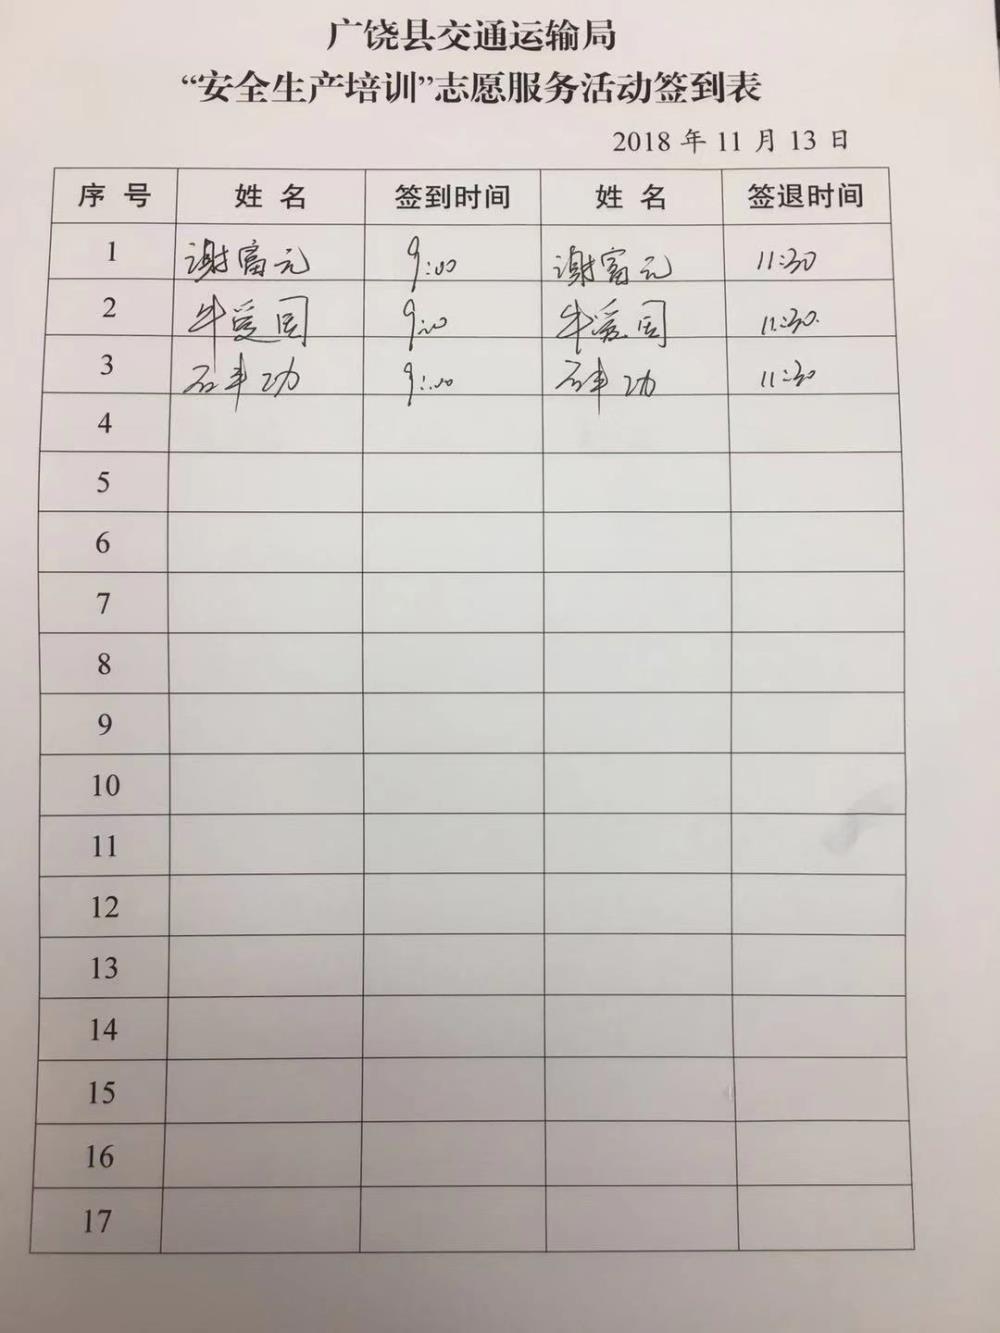 广饶县交通运输局
“安全生产培训”志愿服务活动签到表
2018 年 11 月 13 日
序 号 姓 名 签到时间 姓 名 签退时间
1 谢富元 9:00 谢富元 11:30
2 牛爱国 9:00 牛爱国 11:30
3 石丰功 9:00 石丰功 11:30
4
5
6
7
8
9
10
11
12
13
14
15
16
17